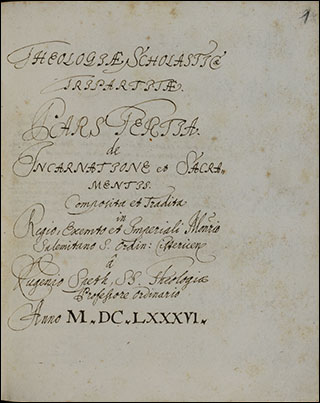 1
THEOLOGIÆ SCHOLASTICÆ
TRIPARTITÆ.
PARS TERTIA.
de
INCARNATIONE et SACRA-
MENTIS.
Composita et Tradita
in
Regio, Exempto et Imperiali Monrio
Salemitano S. Ordin: Cisterciens
â
Eugenio Speth, SS. Theologiæ
Professore ordinario
Anno M. DC. LXXXVI.